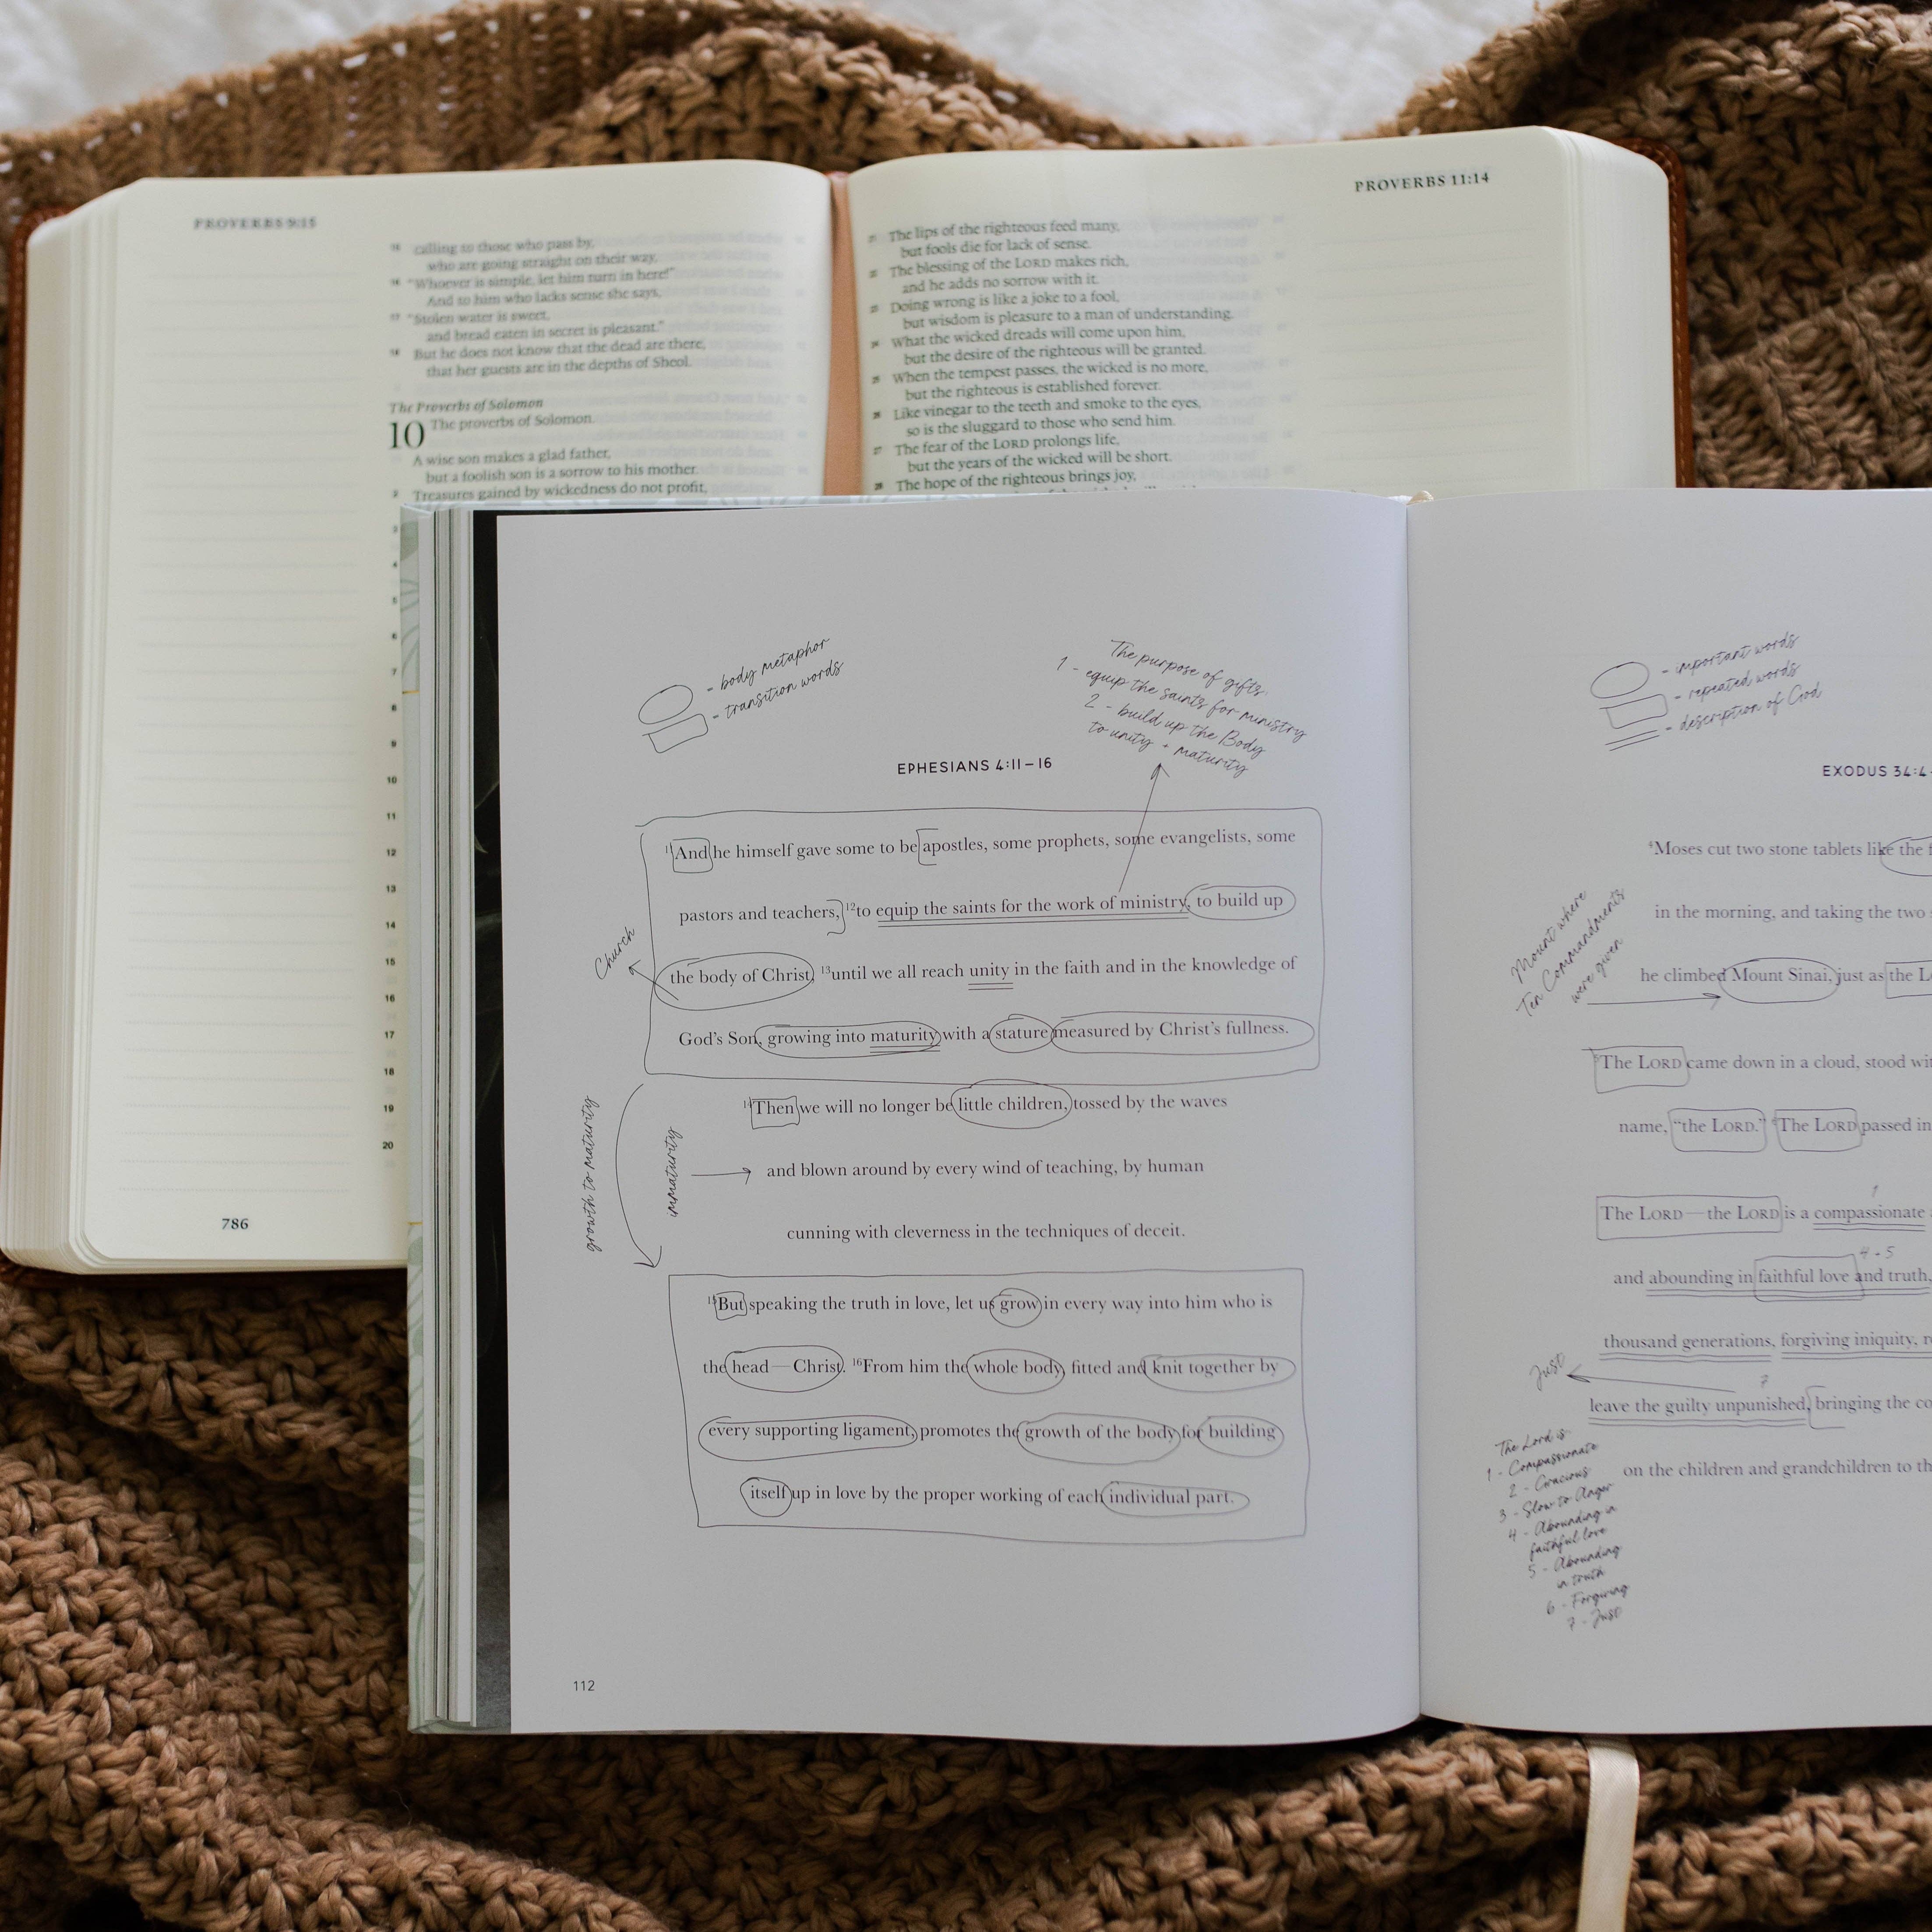 PROVERBS 9:15
15 calling to those who pass by,
who are going straight on their way,
16 “Whoever is simple, let him turn in here!”
And to him who lacks sense she says,
17 “Stolen water is sweet,
and bread eaten in secret is pleasant.”
18 But he does not know that the dead are there,
that her guests are in the depths of Sheol.
The Proverbs of Solomon
10 The proverbs of Solomon.
A wise son makes a glad father,
but a foolish son is a sorrow to his mother.
2 Treasures gained by wickedness do not profit,
3
4
5
6
7
8
9
10
11
12
13
14
15
16
17
18
19
20
786
PROVERBS 11:14
21 The lips of the righteous feed many,
but fools die for lack of sense.
22 The blessing of the LORD makes rich,
and he adds no sorrow with it.
23 Doing wrong is like a joke to a fool,
but wisdom is pleasure to a man of understanding.
24 What the wicked dreads will come upon him,
but the desire of the righteous will be granted.
25 When the tempest passes, the wicked is no more,
but the righteous is established forever.
26 Like vinegar to the teeth and smoke to the eyes,
so is the sluggard to those who send him.
27 The fear of the LORD prolongs life,
but the years of the wicked will be short.
28 The hope of the righteous brings joy,
- body metaphor
- transition words
The purpose of gifts:
1 - equip the saints for ministry
2 - build up the Body
to unity + maturity
EPHESIANS 4:11–16
And he himself gave some to be apostles, some prophets, some evangelists, some
pastors and teachers, 12to equip the saints for the work of ministry, to build up
Church
the body of Christ, 13until we all reach unity in the faith and in the knowledge of
God’s Son, growing into maturity with a stature measured by Christ’s fullness.
growth to maturity
immaturity
14Then we will no longer be little children, tossed by the waves
and blown around by every wind of teaching, by human
cunning with cleverness in the techniques of deceit.
15But speaking the truth in love, let us grow in every way into him who is
the head—Christ. 16From him the whole body, fitted and knit together by
every supporting ligament, promotes the growth of the body for building
itself up in love by the proper working of each individual part.
112
- important words
- repeated words
- description of God
EXODUS 34:4
4Moses cut two stone tablets like the
in the morning, and taking the two
Mount where
Ten Commandments
were given
he climbed Mount Sinai, just as the
5The LORD came down in a cloud, stood
name, “the LORD.” 6The LORD passed in
1
The LORD—the LORD is a compassionate
4 + 5
and abounding in faithful love and truth,
thousand generations, forgiving iniquity,
Just
7
leave the guilty unpunished, bringing the
on the children and grandchildren to
The Lord is:
1 - Compassionate
2 - Gracious
3 - Slow to Anger
4 - Abounding in
faithful love
5 - Abounding
in truth
6 - Forgiving
7 - Just